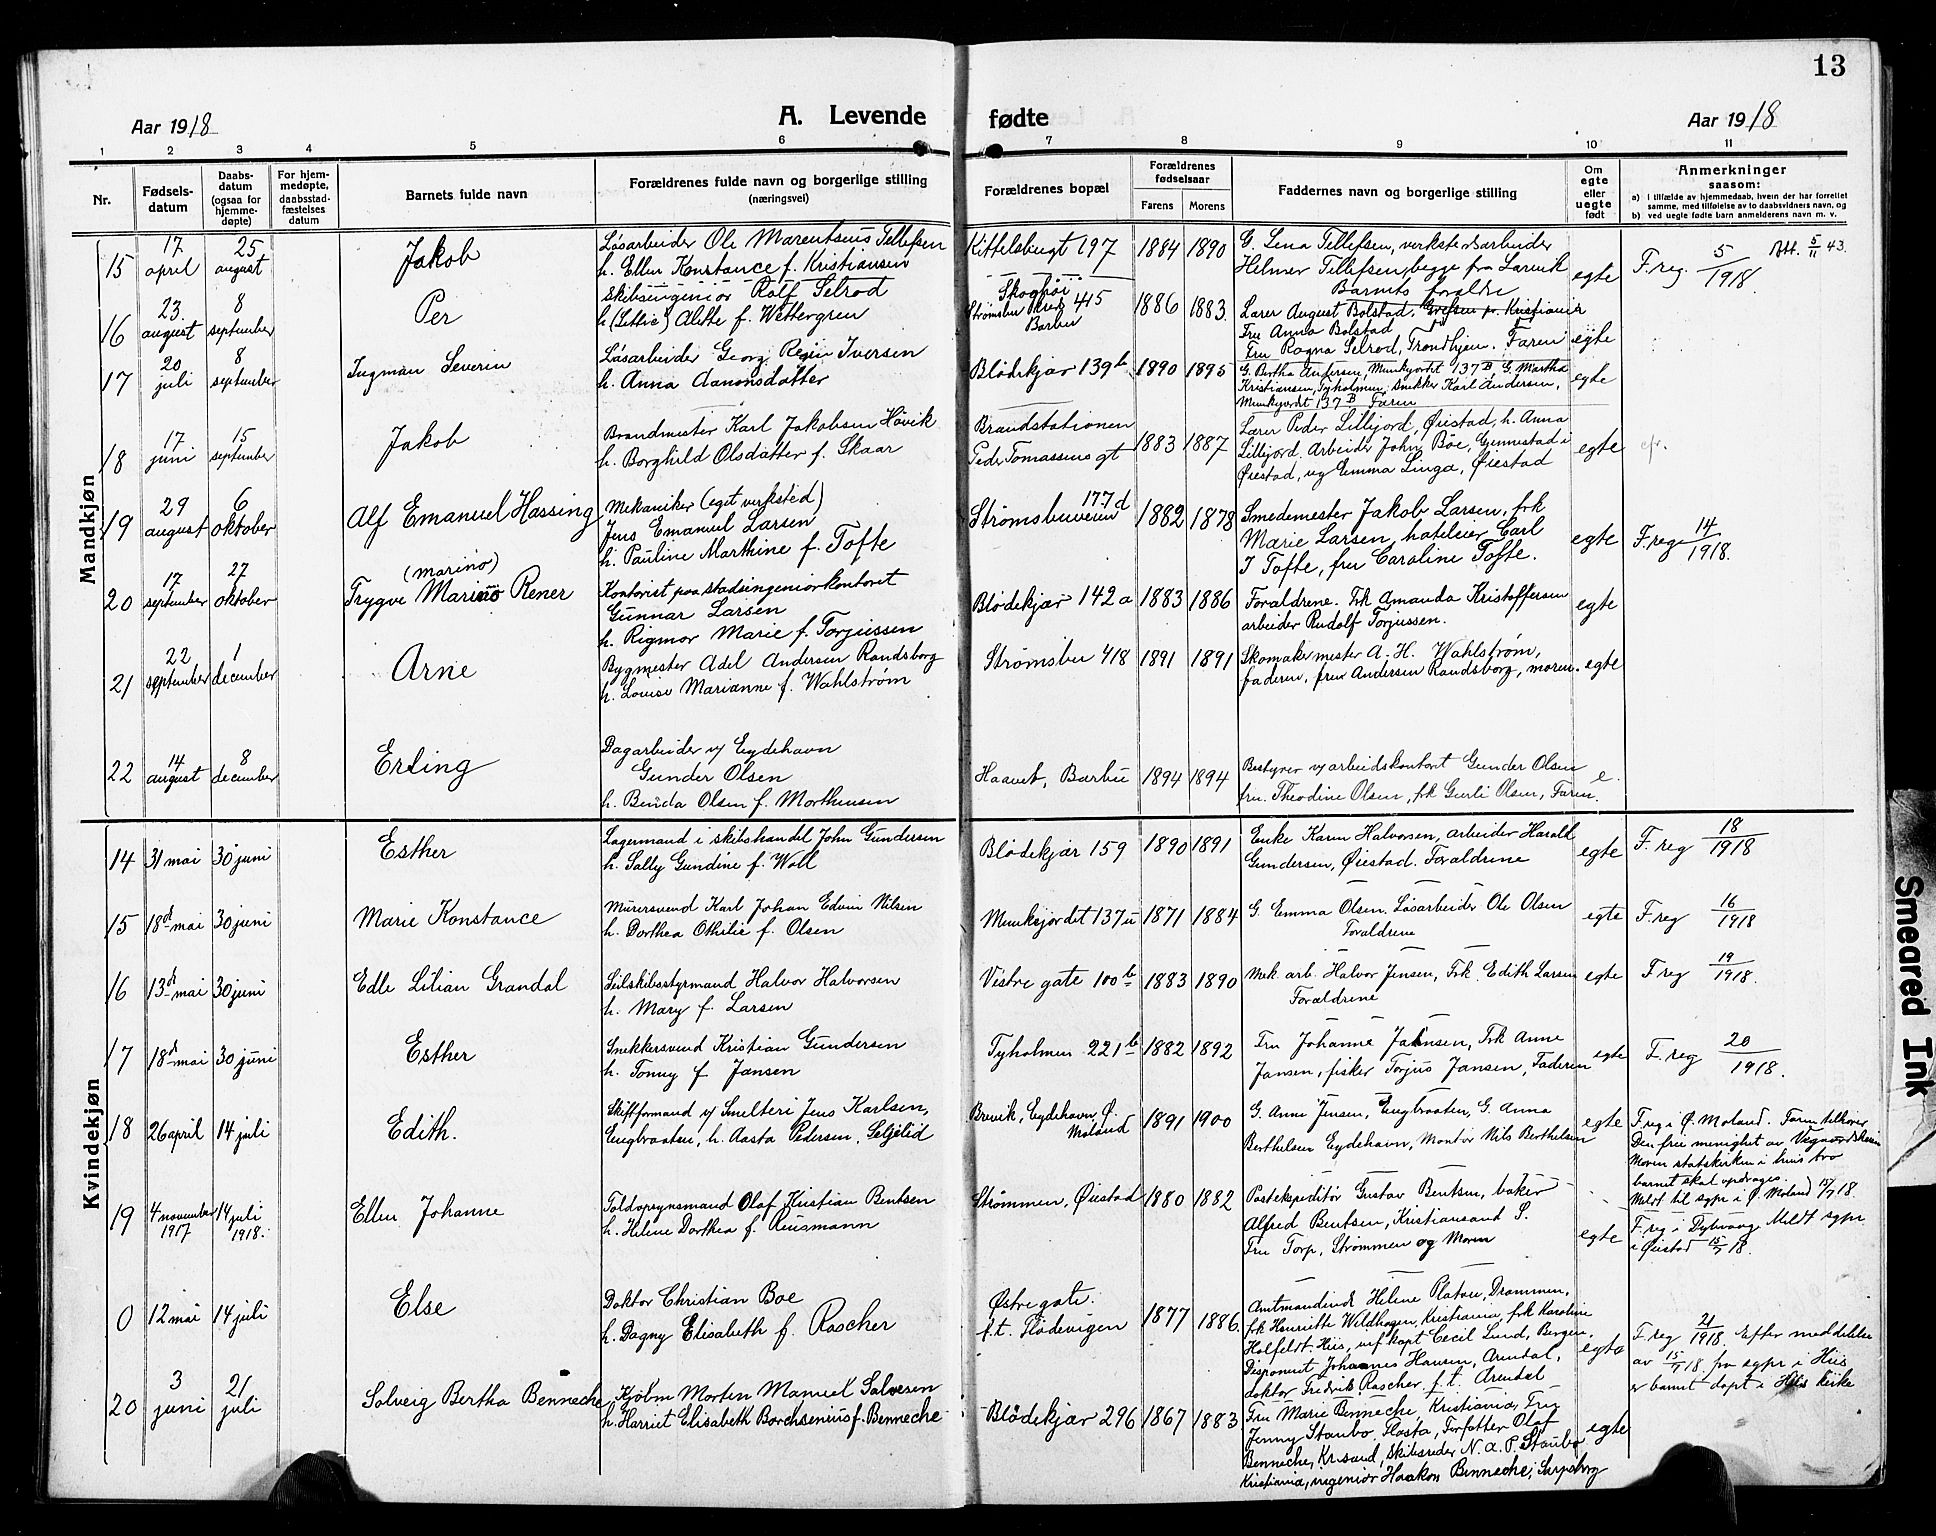 13
Aar 1918
A. Levende fødte
Aar 1918
1 2 3 4 5 6 7 8 9 10 11
Nr.
Fødsels-
datum
Daabs-
datum
(ogsaa for
hjemme-
døpte)
For hjem-
medøpte,
daabsstad-
fæstelses
datum
Barnets fulde navn
Forældrenes fulde navn og borgerlige stilling
(næringsvei)
Forældrenes bopæl
Forældrenes
fødselsaar
Farens Morens
Faddernes navn og borgerlige stilling
Om
egte
eller
uegte
født
Anmerkninger
saasom:
a) I tilfælde av hjemmedaab, hvem der har forrettet
samme, med tilføielse av to daabsvidners navn, og
b) ved uegte fødte barn anmelderens navn m. v.
Mandkjøn
15
17 april
25 august
Jakob
Løsarbeider Ole Marentsius Tellefsen
h. Ellen Konstance f. Kristiansen
Kittelsbugt 197
1884 1890
G. Lena Tellefsen, verkstedsarbeider
Helmer Tellefsen, begge fra Larvik
Barnets forældre
egte
F. reg. 5/1918.
Att. 5/11 43.
16
23. august
8 september
Per
Skibsingeniør Rolf Selrod
h (Lettie) Alette f. Wettergren
Skoghøi
Strømsbu 415
Barbu
1886 1883.
Lærer August Bolstad, Grefsen pr. Kristiania
Fru Anna Bolstad
Fru Ragna Selrod, Trondhjem. Faren
egte
17
20 juli
8 september
Ingman Severin
Løsarbeider Georg Iversen
h. Anna Aanonsdatter
Blødekjær 139 b
1890 1895
G. Bertha Andersen, Munkejordet 137 B, G. Martha
Kristiansen, Tyholmen, snekker Karl Andersen,
Munkejordet 137 B Faren
egte
18
17 juni
15 september
Jakob
Brandmester Karl Jakobsen Høvik
h. Borghild Olsdatter f. Skaar
Brandstationen
Peder Tomassens gt
1883 1887
Lærer Peder Lillejord, Øiestad, h. Anna
Lillejord. Arbeider John Bøe, Gjennestad i
Øiestad, ug Emma Linga, Øiestad
egte
cfr.
19
29 august
6 oktober
Alf Emanuel Hassing
Mekaniker (eget verksted)
Jens Emanuel Larsen
h. Pauline Marthine f. Tofte
Strømsbuveien 177 d
1882 1878
Smedemester Jakob Larsen, frk
Marie Larsen, hoteleier Carl
J Tofte, fru Caroline Tofte.
egte
F. reg 14/1918.
20
17 september
27 oktober
(Marino)
Trygve Marino Rener
Kontorist paa stadsingeniørkontoret
Gunnar Larsen
h. Rigmor Marie f. Torjussen
Blødekjær 142 a
1883 1886
Forældrene. Frk Amanda Kristoffersen
arbeider Rudolf Torjussen.
egte
21
22 september
1 december
Arne
Bygmester Adel Andersen Randsborg
h. Louise Marianne f. Wahlstrøm
Strømsbu 418
1891 1891
Skomakermester A. H. Wahlstrøm,
faderen, fru Andersen Randsborg, moren.
egte
22
14 august
8 december
Erling
Dagarbeider v/ Eydehavn
Gunder Olsen
h. Benda Olsen f. Morthensen
Haavet, Barbu
1894 1894
Bestyrer v/ arbeidskontoret Gunder Olsen
fru. Theodine Olsen, frk Gurli Olsen, Faren.
e.
Kvindekjøn
14
31 mai
30 juni
Esther
Lagermand i skibshandel John Gundersen
h. Sally Gundine f. Woll
Blødekjær 159
1890 1891
Enke Karen Halvorsen, arbeider Harald
Gundersen, Øiestad. Forældrene
egte
F. reg 18/1918
15
18d mai
30 juni
Marie Konstance
Murersvend Karl Johan Edvin Nilsen
h. Dorthea Othilie f. Olsen
Munkejordet 137 u
1871 1884
G. Emma Olsen. Løsarbeider Ole Olsen
Forældrene
egte
F. reg 16/1918
16
13d mai
30 juni
Edle Lilian Grandal
Seilskibsstyrmand Halvor Halvorsen
h. Mary f. Larsen
Vestre gate 100 b
1883 1890
Mek. arb. Halvor Jensen, Frk. Edith Larsen
Forældrene
egte
F reg 19/1918.
17
18d mai
30 juni
Esther
Snekkersvend Kristian Gundersen
h. Tonny f Jansen
Tyholmen 221 b
1882 1892
Fru Johanne Jansen, Frk Anne
Jansen, fisker Torjus Jansen, Faderen
egte
F. reg 20/1918.
18
26 april
14 juli
Edith.
Skiftformand v/ Smelteri Jens Karlsen,
Engbraaten, h. Aasta Pedersen, Seljelid
Brevik, Eydehavn, Ø.
Moland
1891 1900
G. Anne Jensen, Engbraaten, G. Anna
Berthelsen Eydehavn, Montør Nils Berthelsen
egte
F. reg i Ø. Moland. Faren tilhører
Den frie menighet av Vegaardsheien
Moren statskirken i hvis tro
barnet skal opdrages.
Meldt til sgpr i Ø. Moland 15/7 18.
19
4 november 1917
14 juli 1918.
Ellen Johanne
Toldopsynsmand Olaf Kristian Bentsen
h. Helene Dorthea f. Reusmann
Strømmen, Øiestad
1880 1882
Postekspeditør Gustav Bentsen, baker
Alfred Bentsen, Kristiansand S.
Fru Torp, Strømmen og Moren
egte
F. reg i Dybvaag. Meldt sgpr
i Øiestad 15/7 18.
0
12 mai
14 juli
Else
Doktor Christian Boe
h. Dagny Elisabeth f. Rascher
Østre gate.
f.t. Flødevigen
1877 1886
Amtmandinde Helene Platou, Drammen,
frk Henriette Wildhagen, Kristiania, frk Karoline
Holfeldt. Hiis, kapt Cecil Lund, Bergen,
Disponent Johannes Hansen, Arendal,
doktor Fredrik Rascher f.t. Arendal
egte
F. reg 21/1918. Efter meddelelse
av 15/7 18 fra sgpr i Hiis
er barnet døpt i Hiis kirke
20
3 juni
21 juli
Solveig Bertha Benneche
Kjøbm Morten Manuel Salvesen
h. Harriet Elisabeth Borchsenius f. Benneche
Blødekjær 296
1867 1883.
Fru Marie Benneche, Kristiania, Fru
Jenny Staubo, Flosta, Forfatter Olaf
Benneche, Kr.sand, Skibsreder N. A. P. Staubo
Kristiania, ingeniør Haakon Benneche, Sarpsborg
egte
Smeared Ink